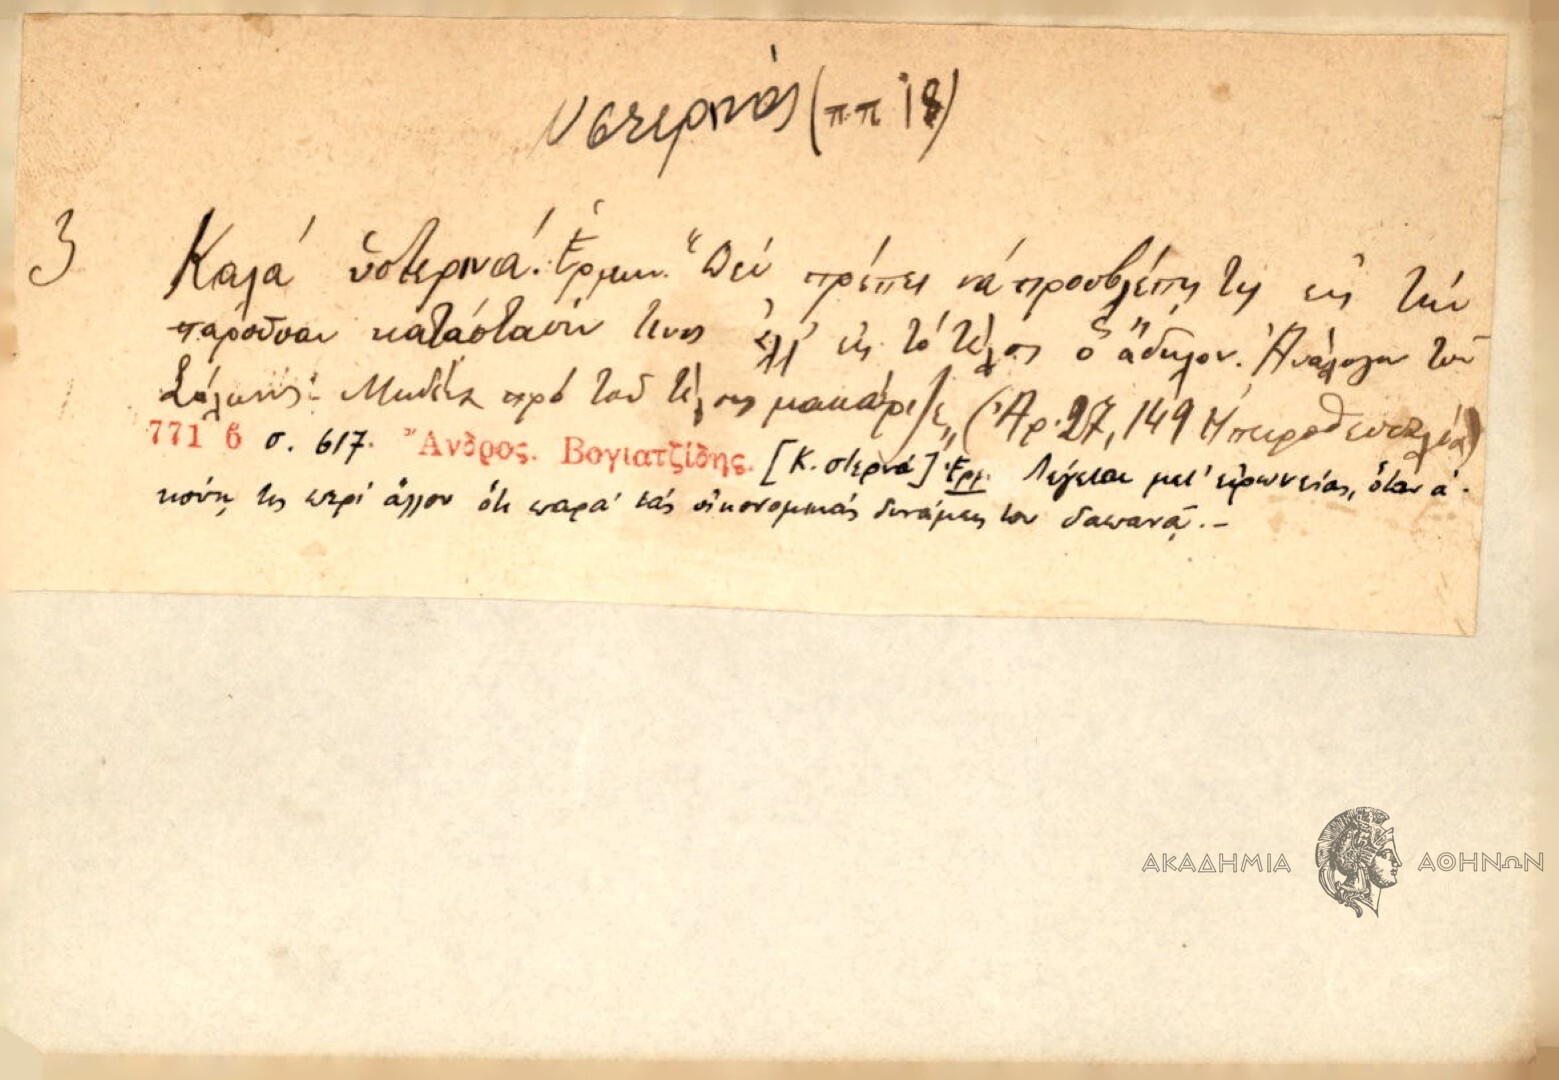 υστερνός (ππ 18)
3 Καλά ὑστερινά! Ἑρμην. "Δέν πρέπει νά προσβλέπῃ τις εἰς τήν
παροῦσαν κατάστασιν τινος ἀλλ' εἰς τό τέλος ὅ ἄδηλον. Ἀνάλογον τοῦ
Σόλωνος: Μηδένα πρό τοῦ τέλους μακάριζε„ (Ἀρ. 27, 149 Ἠπειροθεσσαλία)
771 6 σ. 617. Ἄνδρος. Βογιατζίδης. [Κ. στερνά] Ἑρμ. Λέγεται μετ' εἰρωνείας, ὅταν ἀ-
κούῃ τις περί ἄλλου ὅτι παρά τάς οἰκονομικάς δυνάμεις του δαπανᾷ.-
ΑΚΑΔΗΜΙΑ ΑΘΗΝΩΝ